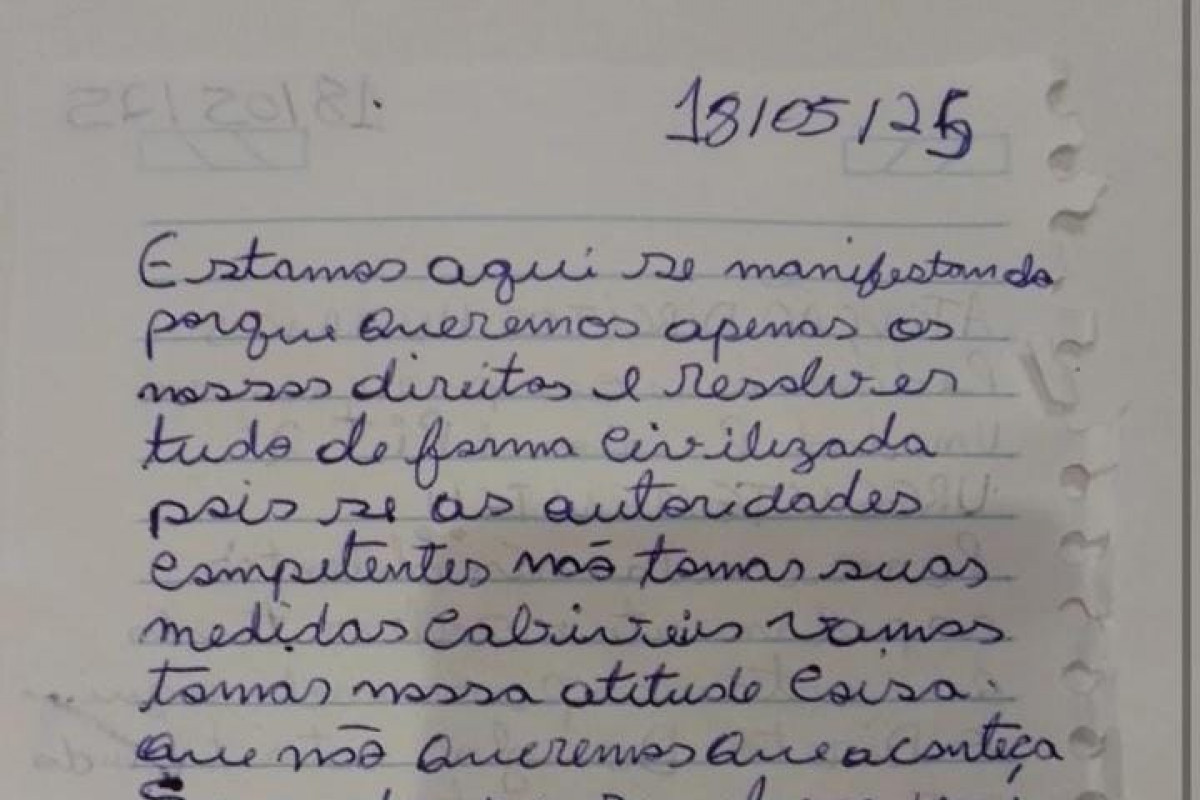 18/05/25
Estamos aqui se manifestando
porque queremos apenas os
nossos direitos e resolver
tudo de forma civilizada
pois se as autoridades
competentes não tomar suas
medidas cabiveis vamos
tomar nossa atitude coisa
que não queremos que aconteça